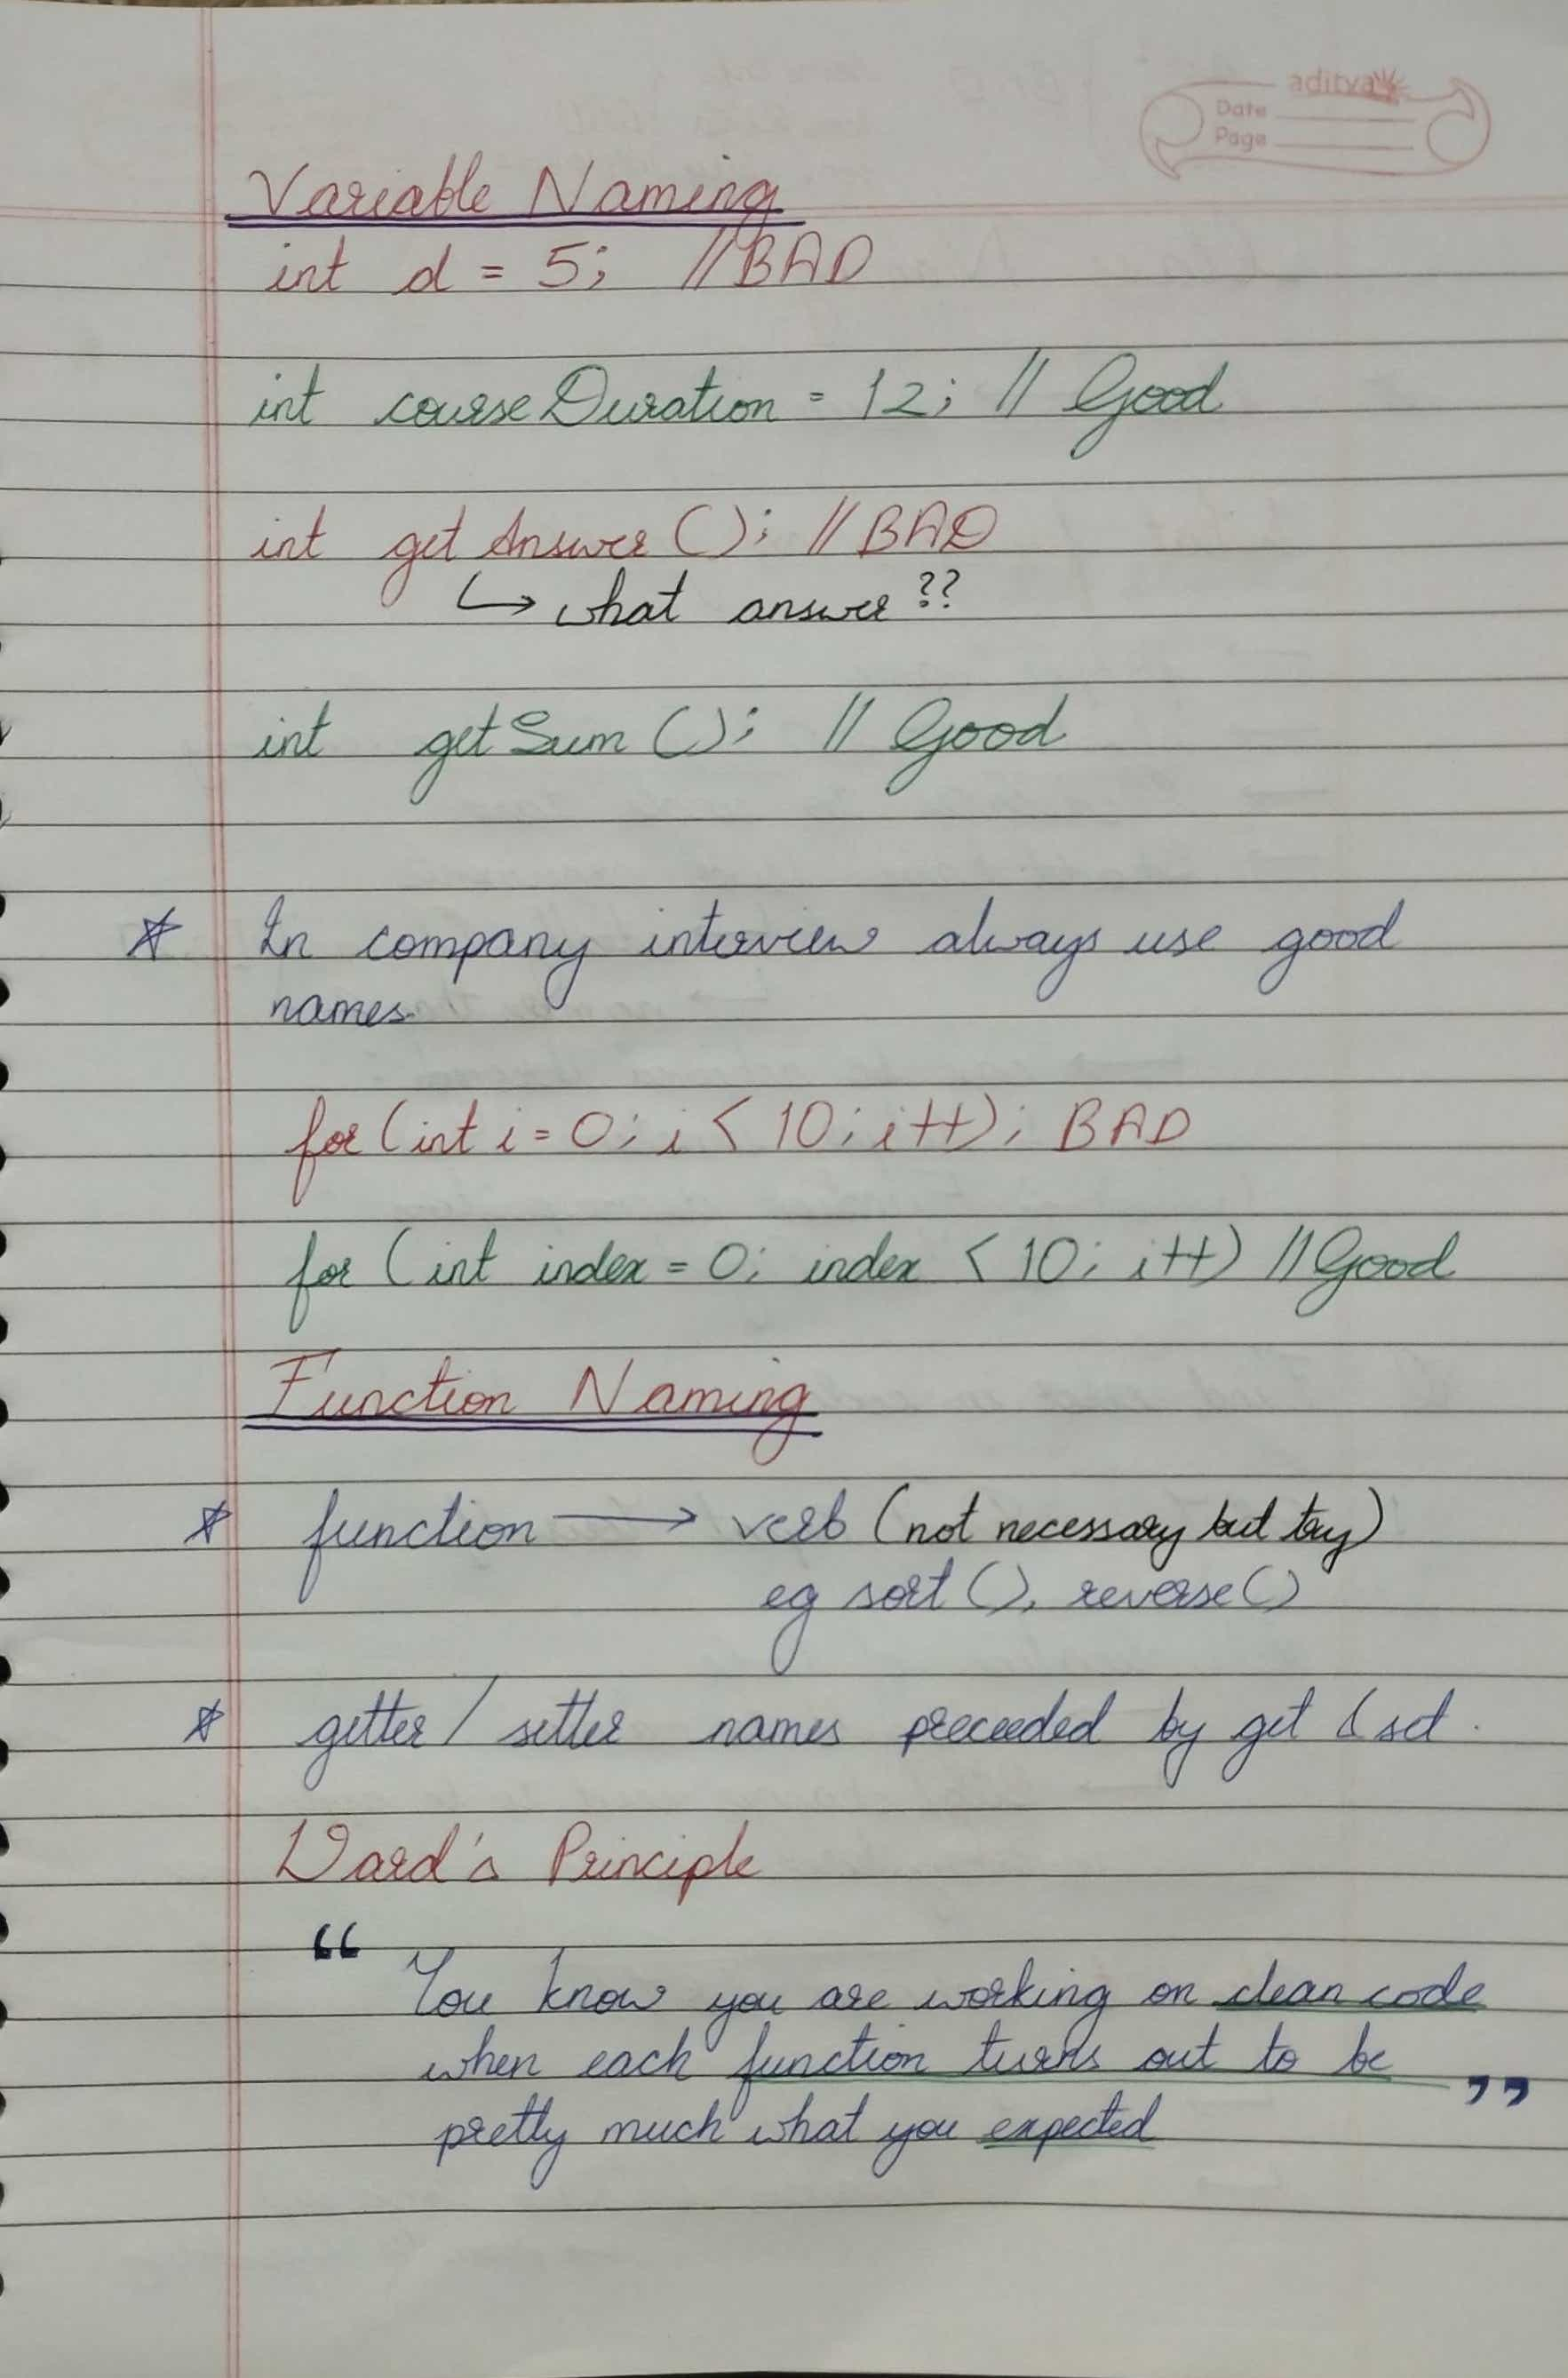 aditya
Date
Page
Variable Naming
int d = 5; //BAD
int courseDuration = 12; // Good
int getAnswer(); //BAD
↳ what answer??
int getSum(); // Good
* In company interview always use good
names.
for (int i = 0; i < 10; i++); BAD
for (int index = 0; index < 10; i++) //Good
Function Naming
* function → verb (not necessary but try)
eg sort(), reverse()
* getter / setter names preceeded by get & set.
Ward's Principle
“ You know you are working on clean code
when each function turns out to be
pretty much what you expected ”